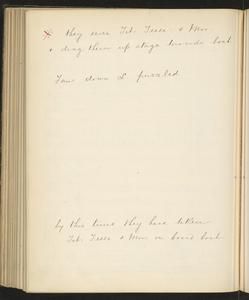 they seize Tib. Tessa & Mor
& drag them up stage towards boat
Tam down L puzzled
by this time they have taken
Tib. Tessa & Mor on board boat